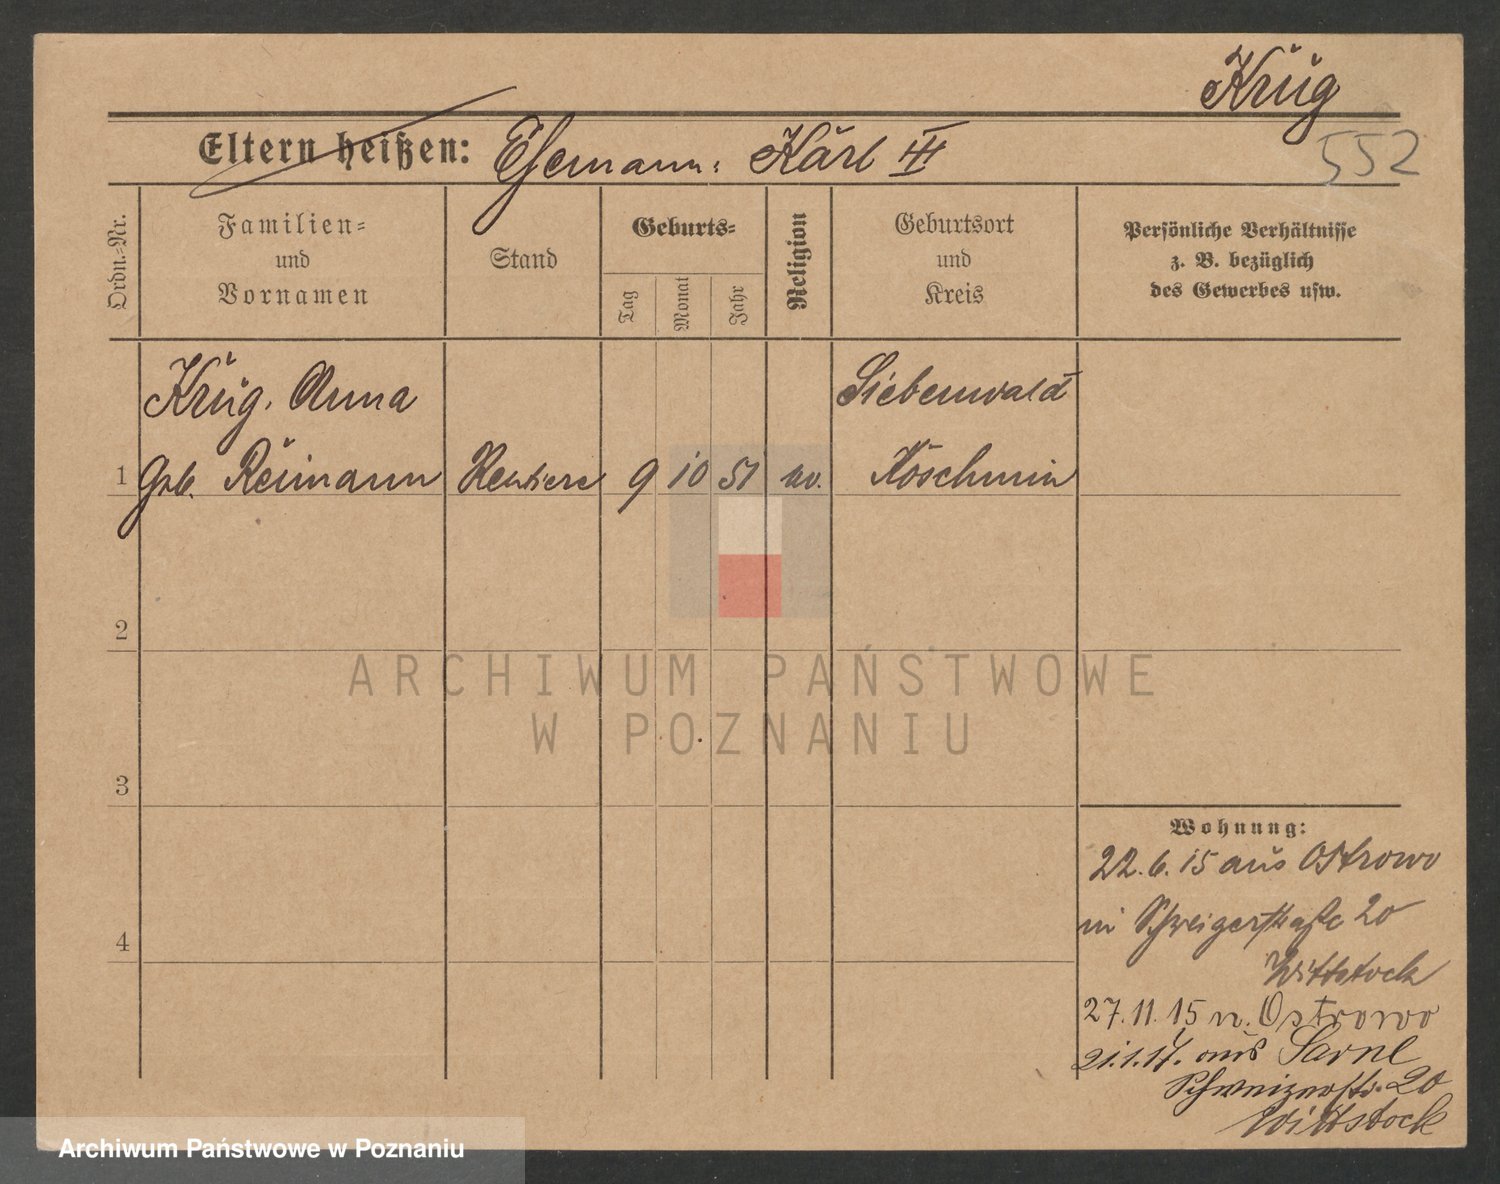 Krüg
552
Eltern heißen: Ehemann: Kärl III
Ordn.-Nr.
Familien-
und
Vornamen
Stand
Geburts-
Tag
Monat
Jahr
Religion
Geburtsort
und
Kreis
Persönliche Verhältnisse
z. B. bezüglich
des Gewerbes usw.
Krüg. Anna
Siebenwald
1 Geb. Reimann Rentiere 9 10 51 ev. Koschmin
2
ARCHIWUM PAŃSTWOWE
W POZNANIU
3
Wohnung:
22.6.15 aus Ostrowo
20
4
Wittstock
27.11.15 n. Ostrowo
21.1.17. aus Sarne
Schweizerstr. 20
Wittstock
Archiwum Państwowe w Poznaniu